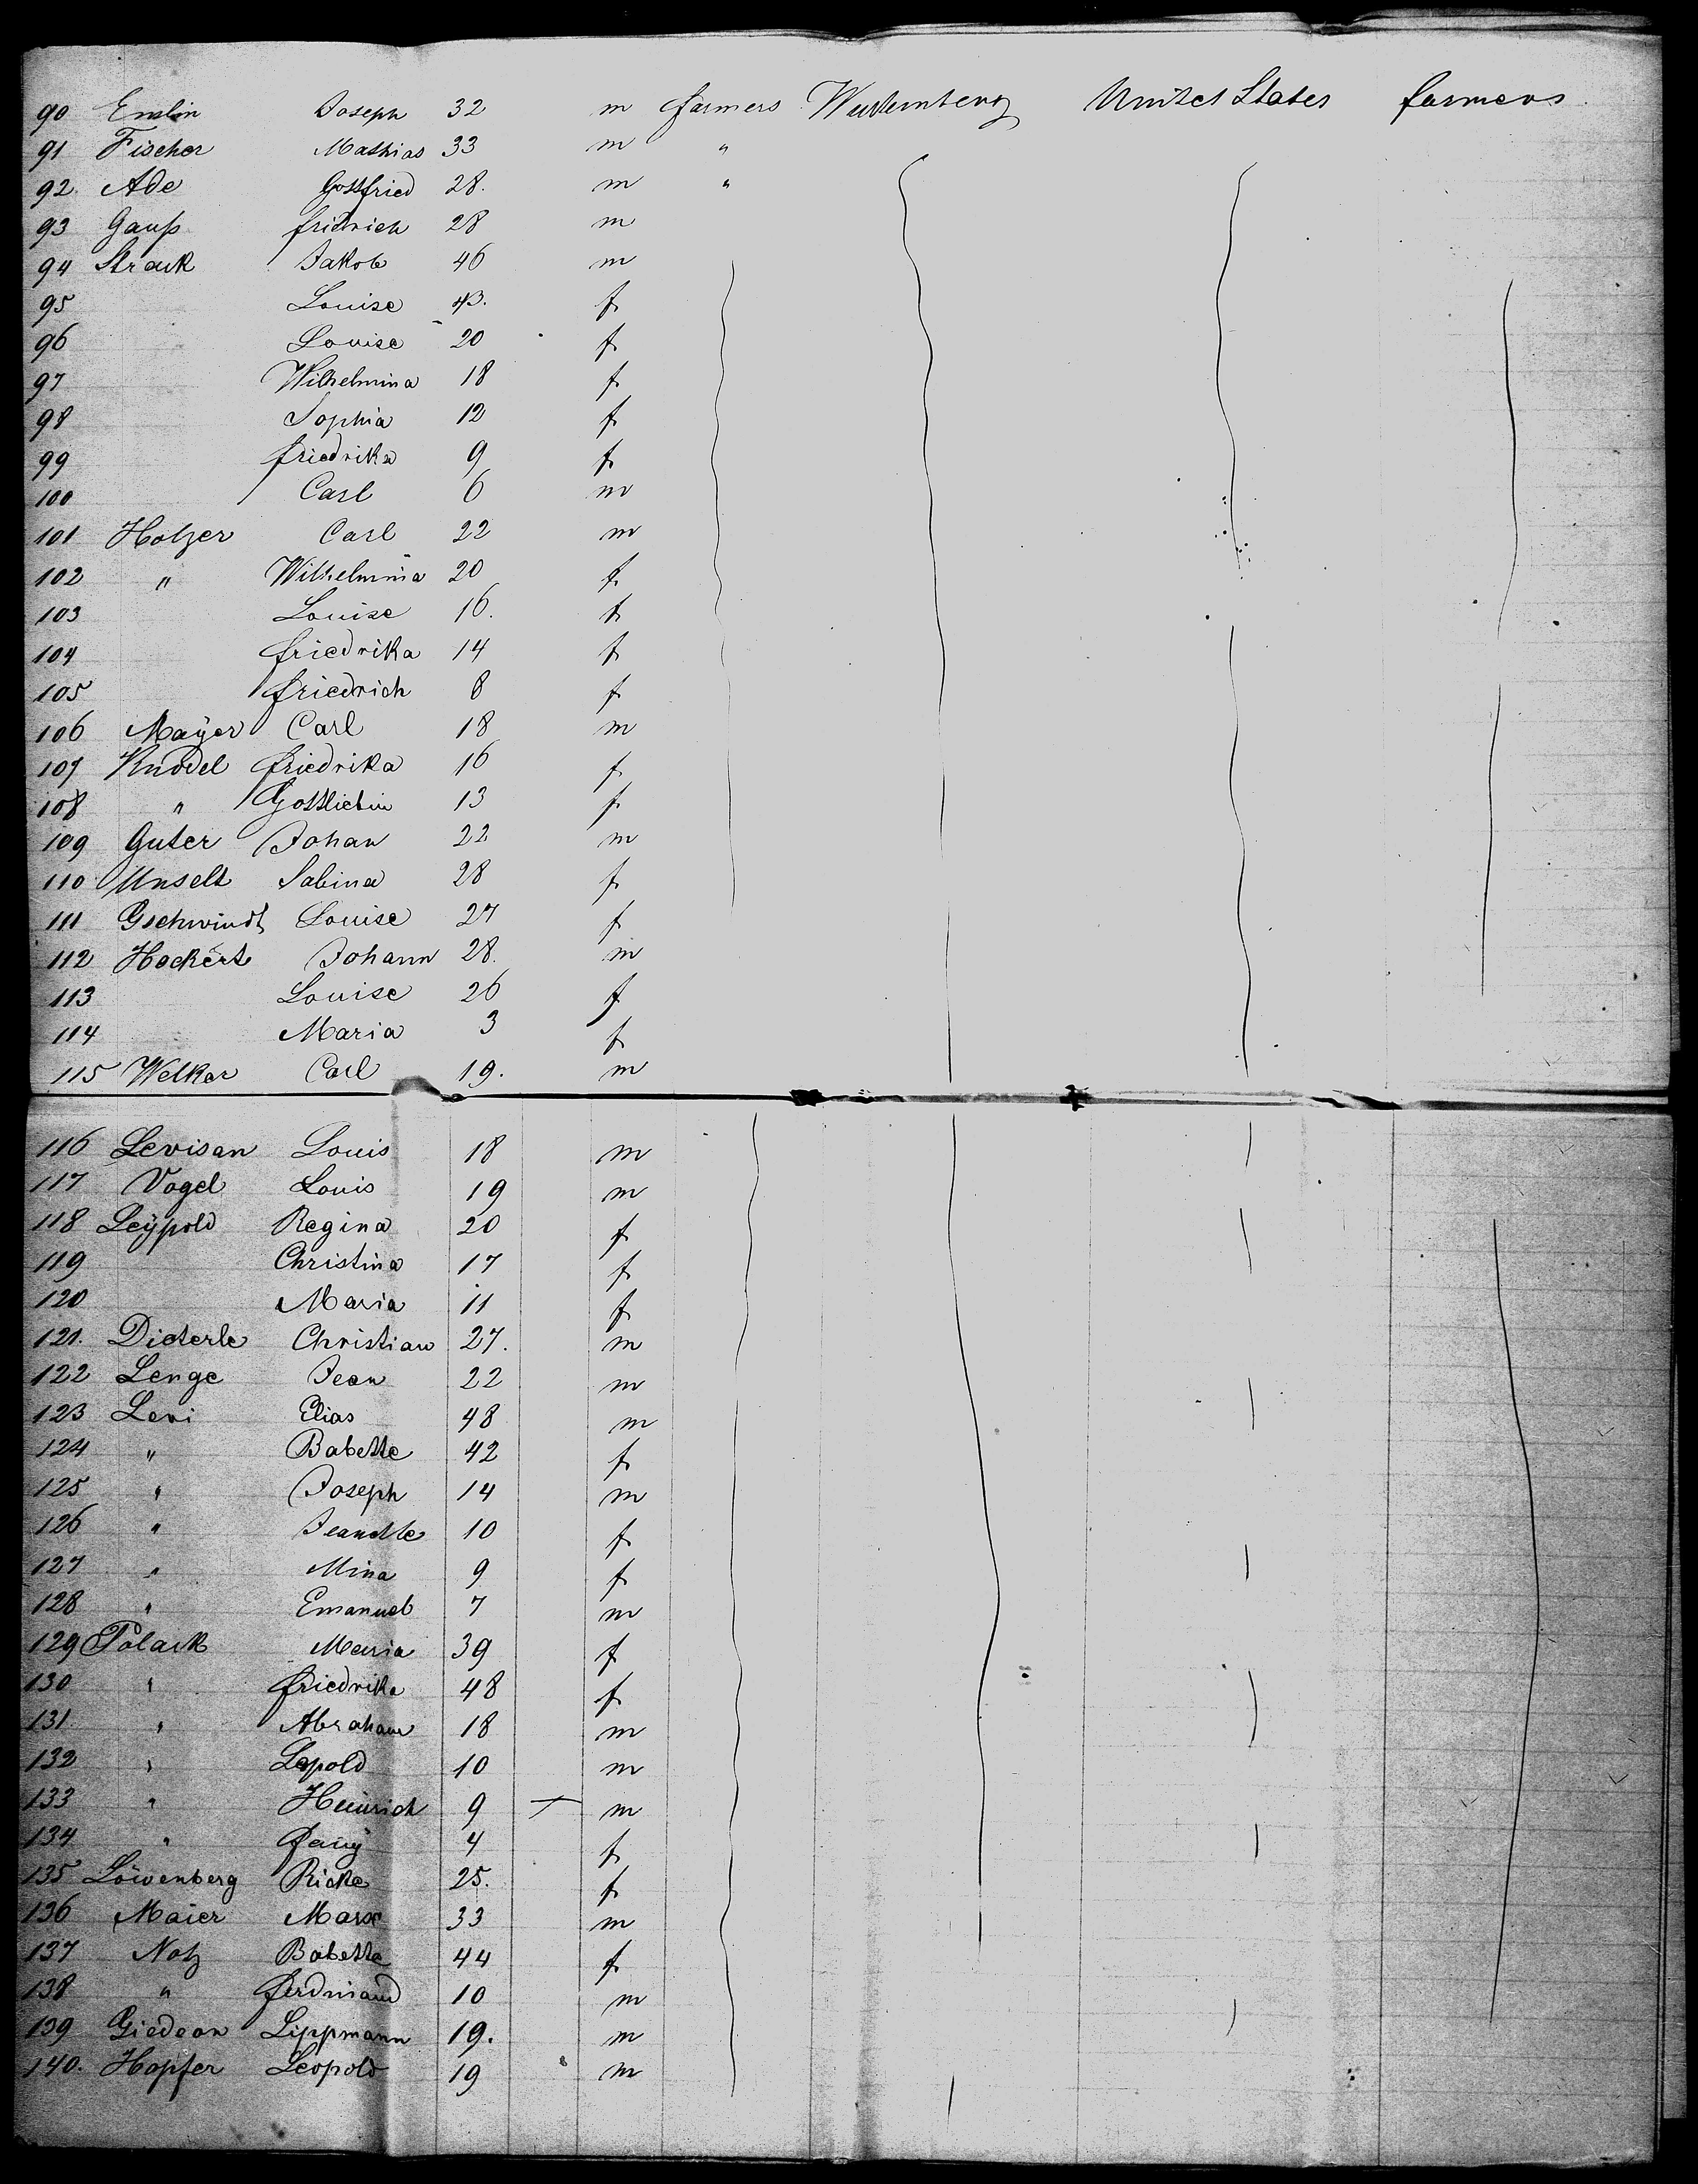 90 Enslin Joseph 32 m farmers Wurtemberg United States farmers
91 Fischer Mathias 33 m "
92. Ade Gottfried 28. m "
93 Gauß fridrich 28 m
94 Strack Jakob 46 m
95 Louise 43. f
96 Louise 20 f
97 Wilhelmina 18 f
98 Sophia 12 f
99 friedrika 9 f
100 Carl 6 m
101 Holzer Carl 22 m
102 " Wilhelmina 20 f
103 Louise 16. f
104 friedrika 14 f
105 friedrich 8 f
106 Mayer Carl 18 m
107 Knodel friedrika 16 f
108 " Gottliebin 13 f
109 Guter Johan 22 m
110 Unselt Sabina 28 f
111 Gschwindt Louise 27 f
112 Hockert Johann 28. m
113 Louise 26 f
114 Maria 3 f
115 Welker Carl 19. m
116 Levisan Louis 18 m
117 Vogel Louis 19 m
118 Leÿpold Regina 20 f
119 Christina 17 f
120 Maria 11 f
121. Dieterle Christian 27. m
122 Lenge Jean 22 m
123 Levi Elias 48 m
124 " Babette 42 f
125 " Joseph 14 m
126 " Jeanette 10 f
127 " Mina 9 f
128 " Emanuel 7 m
129 Polack Maria 39 f
130 " friedrika 48 f
131. " Abraham 18 m
132 " Lepold 10 m
133 " Heinrich 9 m
134 " Fany 4 f
135 Löwenberg Ricke 25. f
136 Maier Marx 33 m
137 Notz Babette 44 f
138 " Ferdinand 10 m
139 Giedeon Lippmann 19. m
140. Hopfer Leopold 19 m